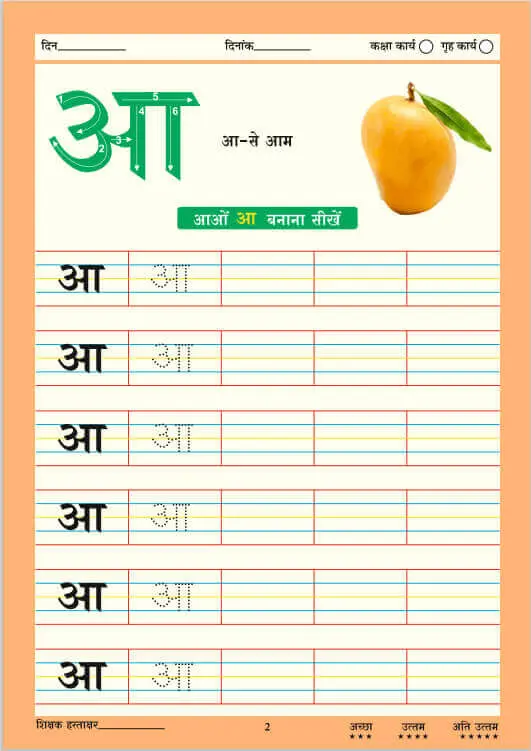 दिन__________ दिनांक__________ कक्षा कार्य गृह कार्य
आ
1 2 3 4 5 6
आ-से आम
आओं आ बनाना सीखें
आ आ
आ आ
आ आ
आ आ
आ आ
आ आ
शिक्षक हस्ताक्षर__________ 2 अच्छा उत्तम अति उत्तम
★★★ ★★★★ ★★★★★